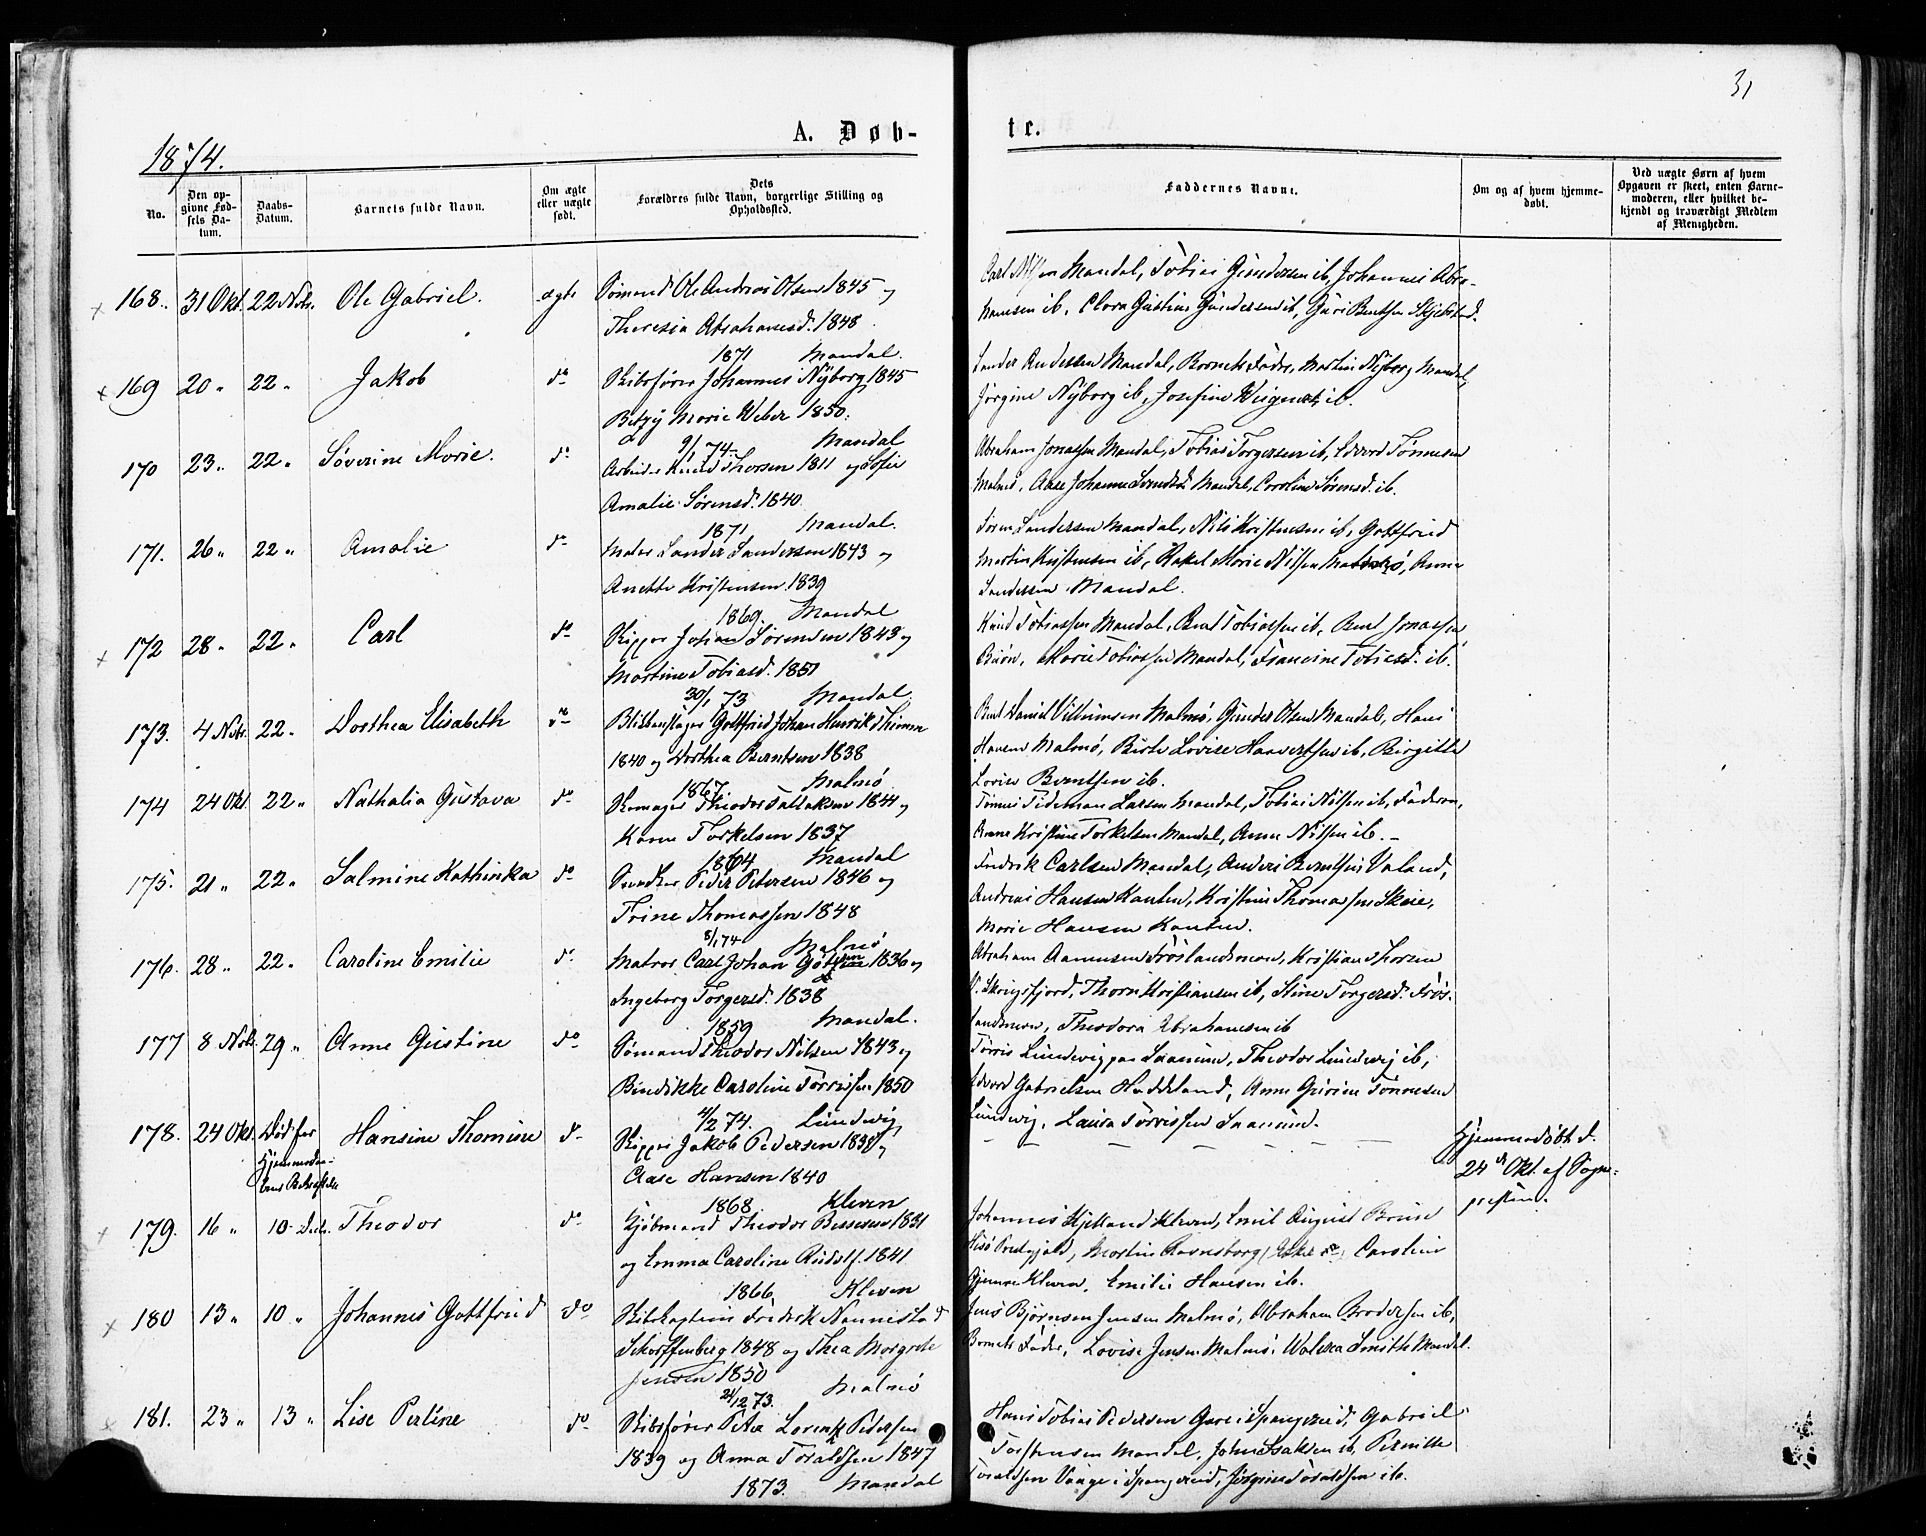 31
A. Døb-
te.
1874.
No.
Den op-
givne Fød-
sels Da-
tum.
Daabs-
Datum.
Barnets fulde Navn.
Om ægte
eller uægte
født.
Dets
Forældres fulde Navn, borgerlige Stilling og
Opholdssted.
Faddernes Navne.
Om og af hvem hjemme-
døbt.
Ved uægte Børn af hvem
Opgaven er skeet, enten Barne-
moderen, eller hvilket be-
kjendt og troværdigt Medlem
af Menigheden.
168. 31 Okt. 22 Novr. Ole Gabriel. ægte Sømand Ole Andreas Olsen 1845 og
Theresia Abrahamsd. 1848
1871 Mandal.
Carl Nilsen Mandal, Tobias Gundersen ib, Johannes Abra-
hamsen ib, Clara Gustine Gundersen ib, Guri Bentsen Skjebstad.
169 20 " 22 " Jakob do Skibsfører Johannes Nyborg 1845
Betzy Marie Weber 1850.
9/1 74 Mandal
Sander Andersen Mandal, Barnets Fader, Martin Nyborg Mandal,
Jørgine Nyborg ib, Josefine Weigner ib.
170 23 " 22 " Søverine Marie. do Arbeider Knud Thorsen 1811 og Sofie
Amalie Sørensd. 1840.
1871 Mandal.
Abraham Jonassen Mandal, Tobias Torgersen ib, Edvard Tønnesen
Malmø, Aase Johanne Mandal, Caroline Sørensd. ib.
171. 26 " 22 " Amalie do Mater Sander Sandersen 1843 og
Anette Kristensen 1839
1869. Mandal
Søren Sandersen Mandal, Nils Kristensen ib, Gottfried
Martin Kristensen ib, Rakel Marie Nilsen Malmø, Anne
Sandersen Mandal.
172 28 " 22 " Carl do Skipper Josian Sørensen 1843 og
Martine Tobiasd. 1851
30/1 73 Mandal
Knud Tobiassen Mandal, Bent Tobiassen ib, Bent Jonassen
Buøn, Marie Tobiassen Mandal, Francine Tobiesd. ib.
173. 4 Novr. 22 " Dorthea Elisabeth do Blikkenslager Gottfried Johan Henrik Thieme
1840 og Dorthea Berntsen 1838
1867 Malmø
Bent Daniel Villumsen Malmø, Gunder Olsen Mandal, Hans
Hansen Malmø, Birte Lovise Haaversen ib, Birgitte
Lovise Berntsen ib.
174 24 Okt. 22 " Nathalia Gustava do Skomager Theodor Tallaksen 1844 og
Karen Torkelsen 1837
1864 Mandal
Tønnes Tideman Larsen Mandal, Tobias Nilsen ib, Faderen,
Anne Kristine Torkelsen Mandal, Anne Nilsen ib. -
175. 21 " 22 " Salmine Kathinka do Snedker Peder Petersen 1846 og
Trine Thomassen 1848
8/1 74 Malmø
Fredrik Carlsen Mandal, Anders Berntsen Valand,
Andreas Hansen Kanten, Kristine Thomassen Skeie,
Marie Hansen Kanten.
176. 28 " 22 " Caroline Emilie do Matros Carl Johan 1836 og
Ingeborg Torgersd. 1838
1859 Mandal.
Abraham Aanensen Frøslandsmoen, Kristian Thorsen
V. Skogsfjord, Thorn Kristiansen ib, Stine Torgersd. Frøs-
landsmoen, Theodora Abrahamsen ib
177 8 Novr. 29 " Anne Gustine do Sømand Theodor Nilsen 1843 og
Bindikke Caroline Tørrisen 1850
4/2 74. Lundevig
Tørris Lundevig paa Saanum, Theodor Lundevig ib,
Edvard Gabrielsen Huddeland, Anne Gurine Tønnesen
Lundevig, Laura Tørrissen Saanum.
178. 24 Okt. Død før
Hjemmedaa-
bens Bekræftelse
Hansine Thomine do Skipper Jakob Pedersen 1838 og
Aase Hansen 1840
1868 Kleven
Hjemmedøbt d.
24de Okt. af Sogne-
presten.
179. 16 " 10 Decbr. Theodor do Kjøbmand Theodor Bessesen 1831
og Emma Caroline Rudolf. 1841
1866 Kleven
Johannes Kjelland Kleven, Emil August Bruse
Hisø Prestgjeld, Martin Ravnsborg (Asker), Caroline
Gjemre Kleven, Emilie Hansen ib.
180 13 " 10 " Johannes Gottfried do Skibskaptein Fredrik Nannestad
Schorffenberg 1848 og Thea Margrete
Jensen 1850
21/12 73. Malmø
Jens Bjørnsen Jensen Malmø, Abraham Brodersen ib,
Barnets Fader, Lovise Jensen Malmø, Waleska Smith Mandal.
181. 23 " 13 " Lise Perline do Skibsfører Peter Lorentz Pedersen
1839 og Anna Toraldsen 1847
1873. Mandal
Hans Tobias Pedersen Gare i Spangereid, Gabriel
Torstensen Mandal, John Isaksen ib, Pernille
Toraldsen Vaage i Spangereid, Jørgine Toraldsen ib.